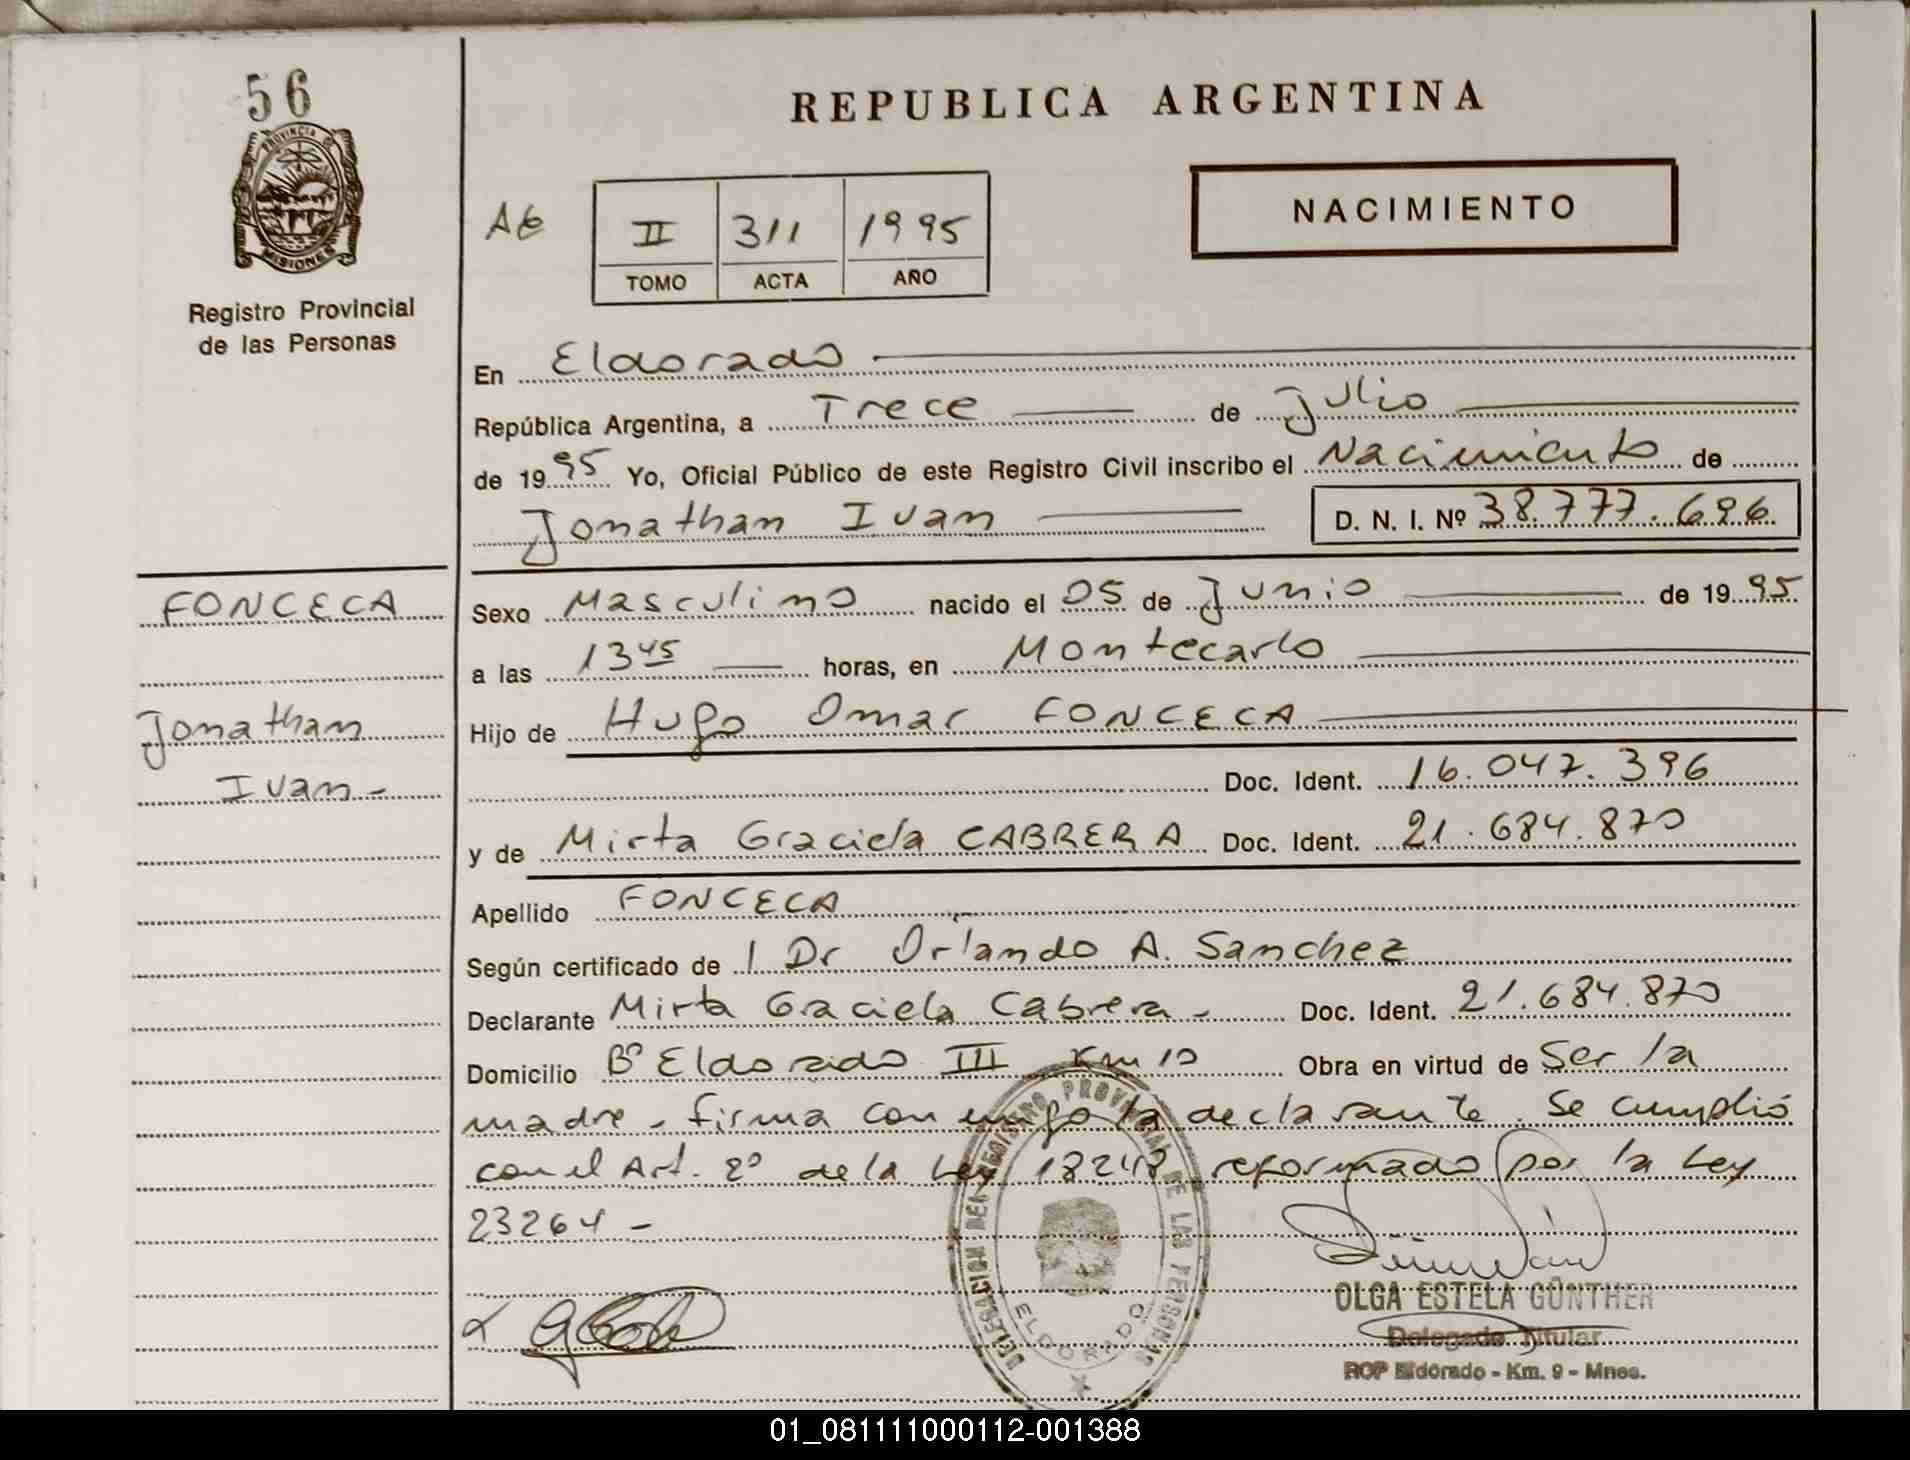 56
PROVINCIA DE
MISIONES
Registro Provincial
de las Personas
REPUBLICA ARGENTINA
NACIMIENTO
II 311 1995
TOMO ACTA AÑO
En Eldorado
República Argentina, a Trece de Julio
de 1995 Yo, Oficial Público de este Registro Civil inscribo el Nacimiento de
Jonathan Ivan D. N. I. Nº 38.777.696
FONCECA
Jonathan
Ivan-
Sexo Masculino nacido el 05 de Junio de 1995
a las 13 45 horas, en Montecarlo
Hijo de Hugo Omar FONCECA
Doc. Ident. 16.047.396
y de Mirta Graciela CABRERA Doc. Ident. 21.684.870
Apellido FONCECA
Según certificado de 1 Dr Orlando A. Sanchez
Declarante Mirta Graciela Cabrera - Doc. Ident. 21.684.870
Domicilio Bº Eldorado III Km 10 Obra en virtud de Ser la
madre - firma conmigo la declarante. Se cumplió
con el Art. 2º de la Ley 18248 reformado por la Ley
23264 -
DELEGACION DEL REGISTRO PROVINCIAL DE LAS PERSONAS
ELDORADO
OLGA ESTELA GÜNTHER
Delegada Titular
RCP Eldorado - Km. 9 - Mnes.
01_081111000112-001388